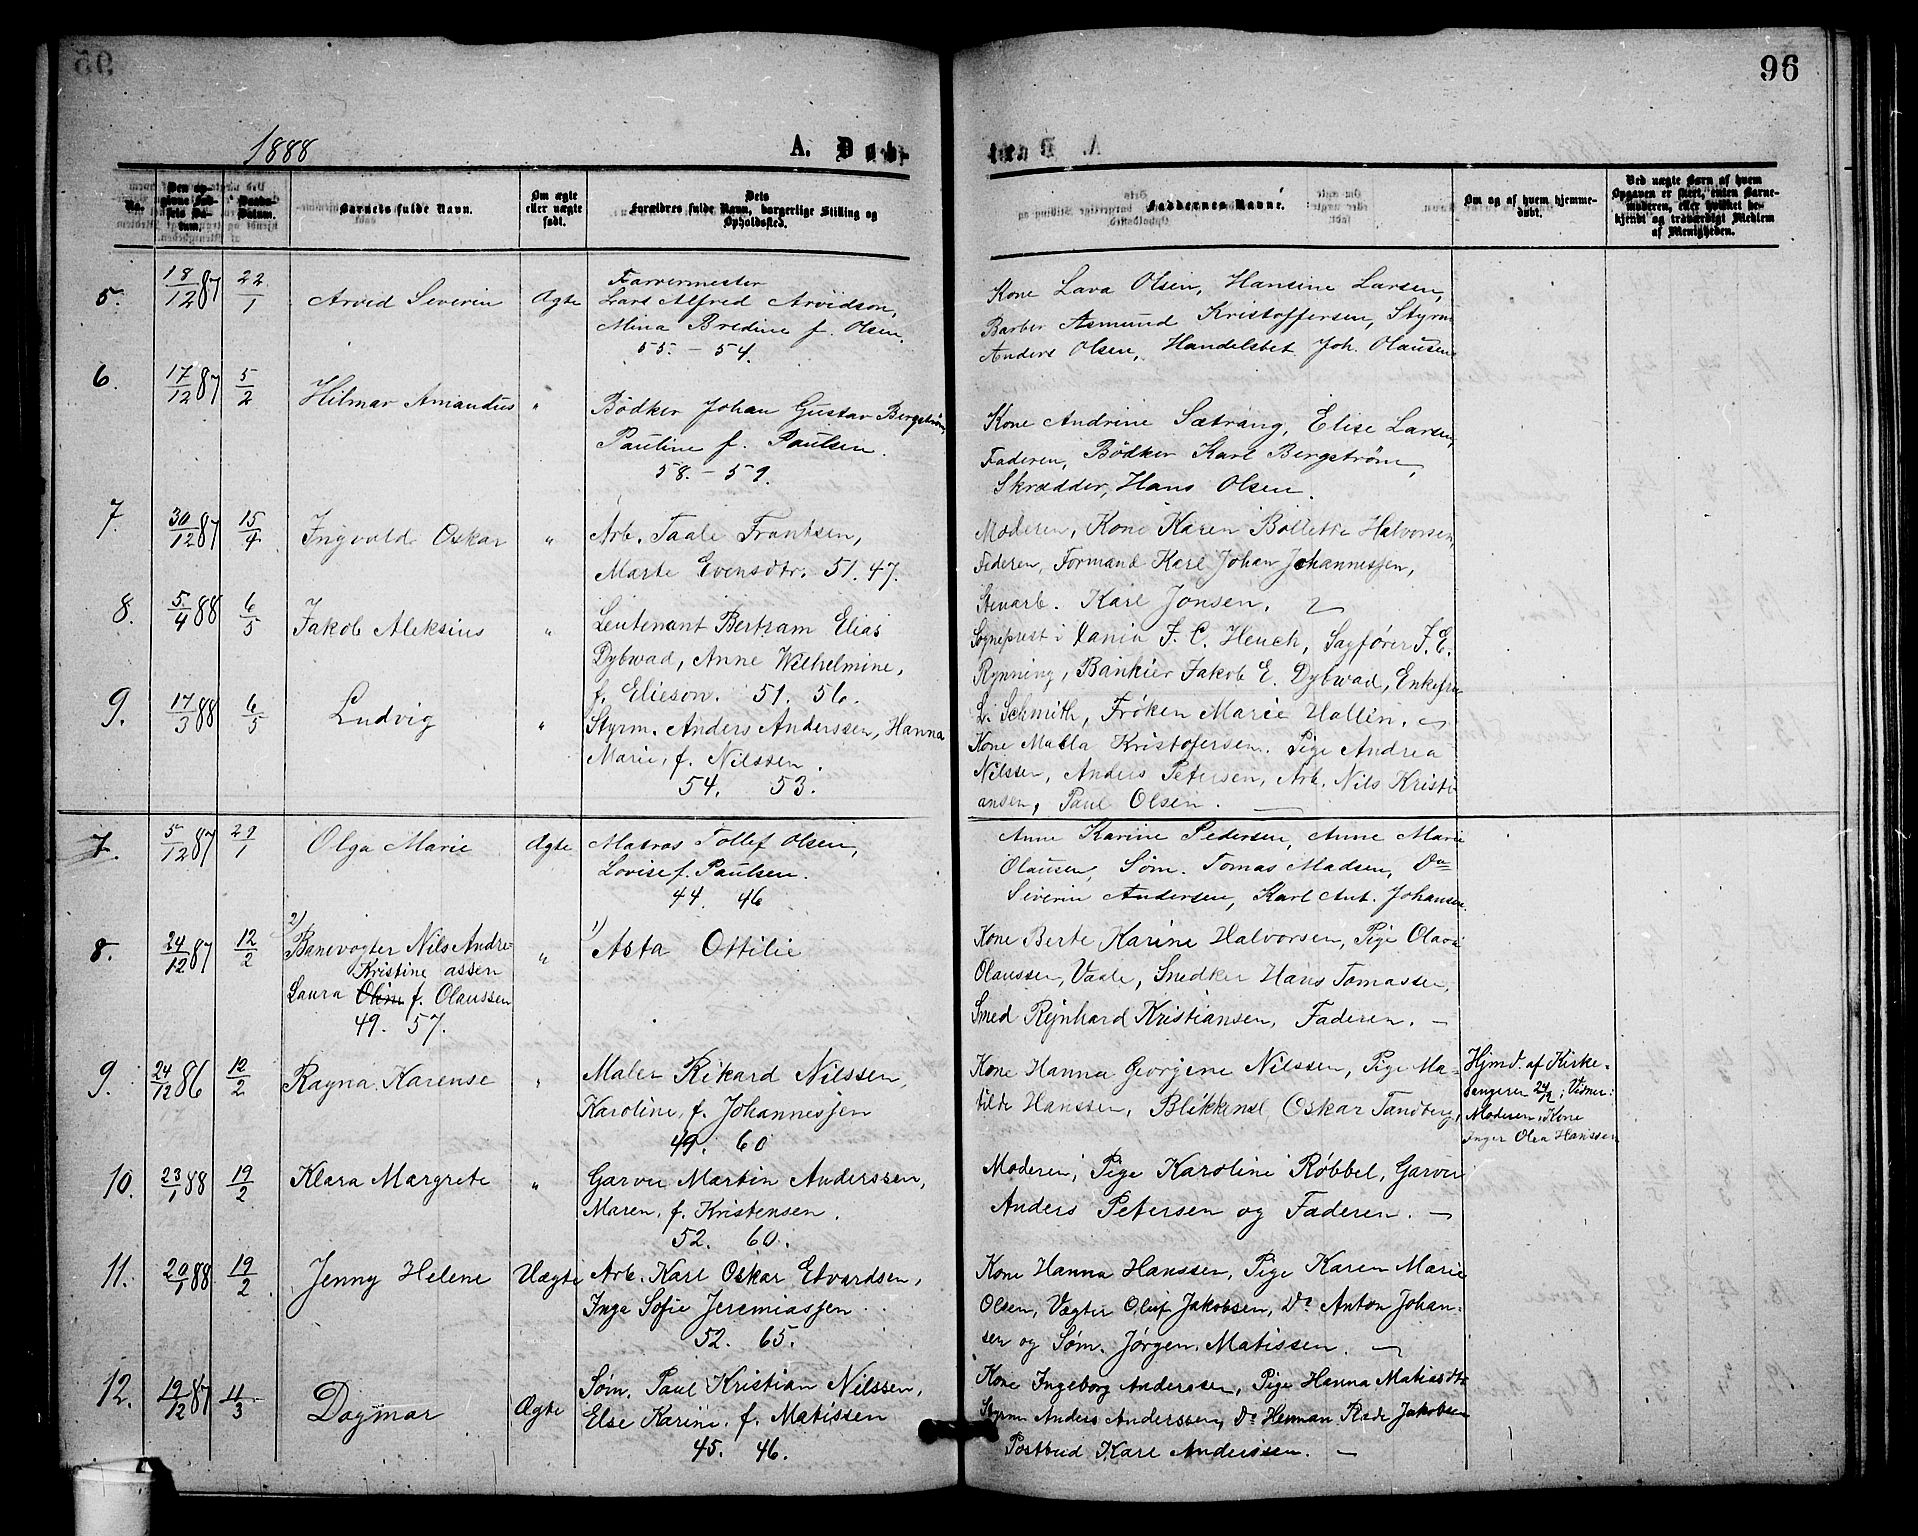 96
1888
A. Døbte
No.
Den opgivne Fødsels Datum.
Daabs-Datum.
Barnets fulde Navn.
Om ægte eller uægte født.
Dets Forældres fulde Navn, borgerlige Stilling og Opholdssted.
Faddernes Navne.
Om og af hvem hjemmedøbt.
Ved uægte Barn af hvem Opgaven er skeet, enten Barnemoderen, eller hvilket bekjendt og troværdigt Medlem af Menigheden.
5. 18/12 87 22/1 Arvid Severin Ægte Farvermester
Lars Alfred Arvidson,
Mina Bredine f. Olsen.
55. - 54.
Kone Lava Olsen, Hansine Larsen,
Barber Asmund Kristoffersen, Styrm.
Anders Olsen, Handelsbet. Joh. Olausen
6. 17/12 87 5/2 Hilmar Amandus " Bødker Johan Gustav Bergstrøm,
Pauline f. Paulsen.
58. - 59.
Kone Andrine Sætrang, Elise Larsen,
Faderen, Bødker Karl Bergstrøm,
Skrædder, Hans Olsen.
7. 30/12 87 15/4 Ingvald Oskar " Arb. Taale Frantsen,
Marte Evensdtr. 51. 47.
Moderen, Kone Karen Bollette Halvorsen,
Faderen, Formand Karl Johan Johannesjen,
Stenarb. Karl Jonsen.
8. 5/4 88 6/5 Jakob Aleksius " Leutenant Bertram Elias
Dybwad, Anne Wilhelmine,
f. Elieson. 51. 56.
Sogneprest i Vania F. C. Heuch, Sagfører F. E.
Rynning, Bankier Jakob E. Dybwad, Enkefru
L. Schmith, Frøken Marie Vallin.
9. 17/3 88 6/5 Ludvig " Styrm. Anders Anderssen, Hanna
Marie, f. Nilssen.
54. 53.
Kone Malla Kristofersen. Pige Andrea
Nilssen, Anders Petersen, Arb. Nils Kristi-
ansen, Paul Olsen.
7. 5/12 87 29/1 Olga Marie Ægte Matros Tollef Olsen,
Lovise f. Paulsen.
44. 46
Anne Karine Pedersen, Anne Marie
Olausen, Søm. Tomas Madsen, Do
Severin Andersen, Karl Ant. Johansen.
8. 24/12 87 12/2 2) Banevogter Nils Andre-
Kristine assen
Laura Oline f. Olaussen
49. 57.
" 1) Asta Ottilie
Kone Berte Karine Halvorsen, Pige Olava
Olaussen, Vaale, Snedker Hans Tomassen,
Smed Reinhard Kristiansen, Faderen.
9. 24/12 86 12/2 Ragna Karense " Maler Rikard Nilssen,
Karoline, f. Johannesjen
49. 60
Kone Hanna Georgine Nilssen, Pige Ma-
tilde Hanssen, Blikkensl. Oskar Tandberg,
Hjmd. af Kirke-
sangeren 24/2; Vidner:
Moderen, Kone
Inger Olea Hanssen
10. 23/1 88 19/2 Klara Margrete " Garver Martin Anderssen,
Maren, f. Kristensen.
52. 60.
Moderen, Pige Karoline Røbbel, Garver
Anders Petersen og Faderen.
11. 20/1 88 19/2 Jenny Helene Uægte Arb. Karl Oskar Edvardsen,
Inga Sofie Jeremiasjen
52. 65.
Kone Hanna Hanssen, Pige Karen Marie
Olsen, Vægter Oluf Jakobsen, Do Anton Johan-
sen og Søm. Jørgen Matissen.
12. 19/12 87 11/3 Dagmar Ægte Søm. Paul Kristian Nilssen,
Else Karine, f. Matissen
45. 46.
Kone Ingeborg Anderssen, Pige Hanna Matiasdtr
Styrm Anders Anderssen, Do Herman Rade Jakobsen
Postbud Karl Anderssen.